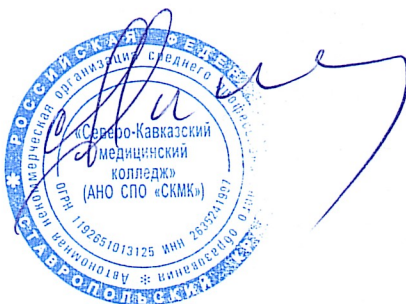 РОССИЙСКАЯ ФЕДЕР
СТАВРОПОЛЬСКИЙ
Автономная некоммерческая организация среднего профес
образования
ОГРН 1192651013125 ИНН 2635241997
«Северо-Кавказский
медицинский
колледж»
(АНО СПО «СКМК»)